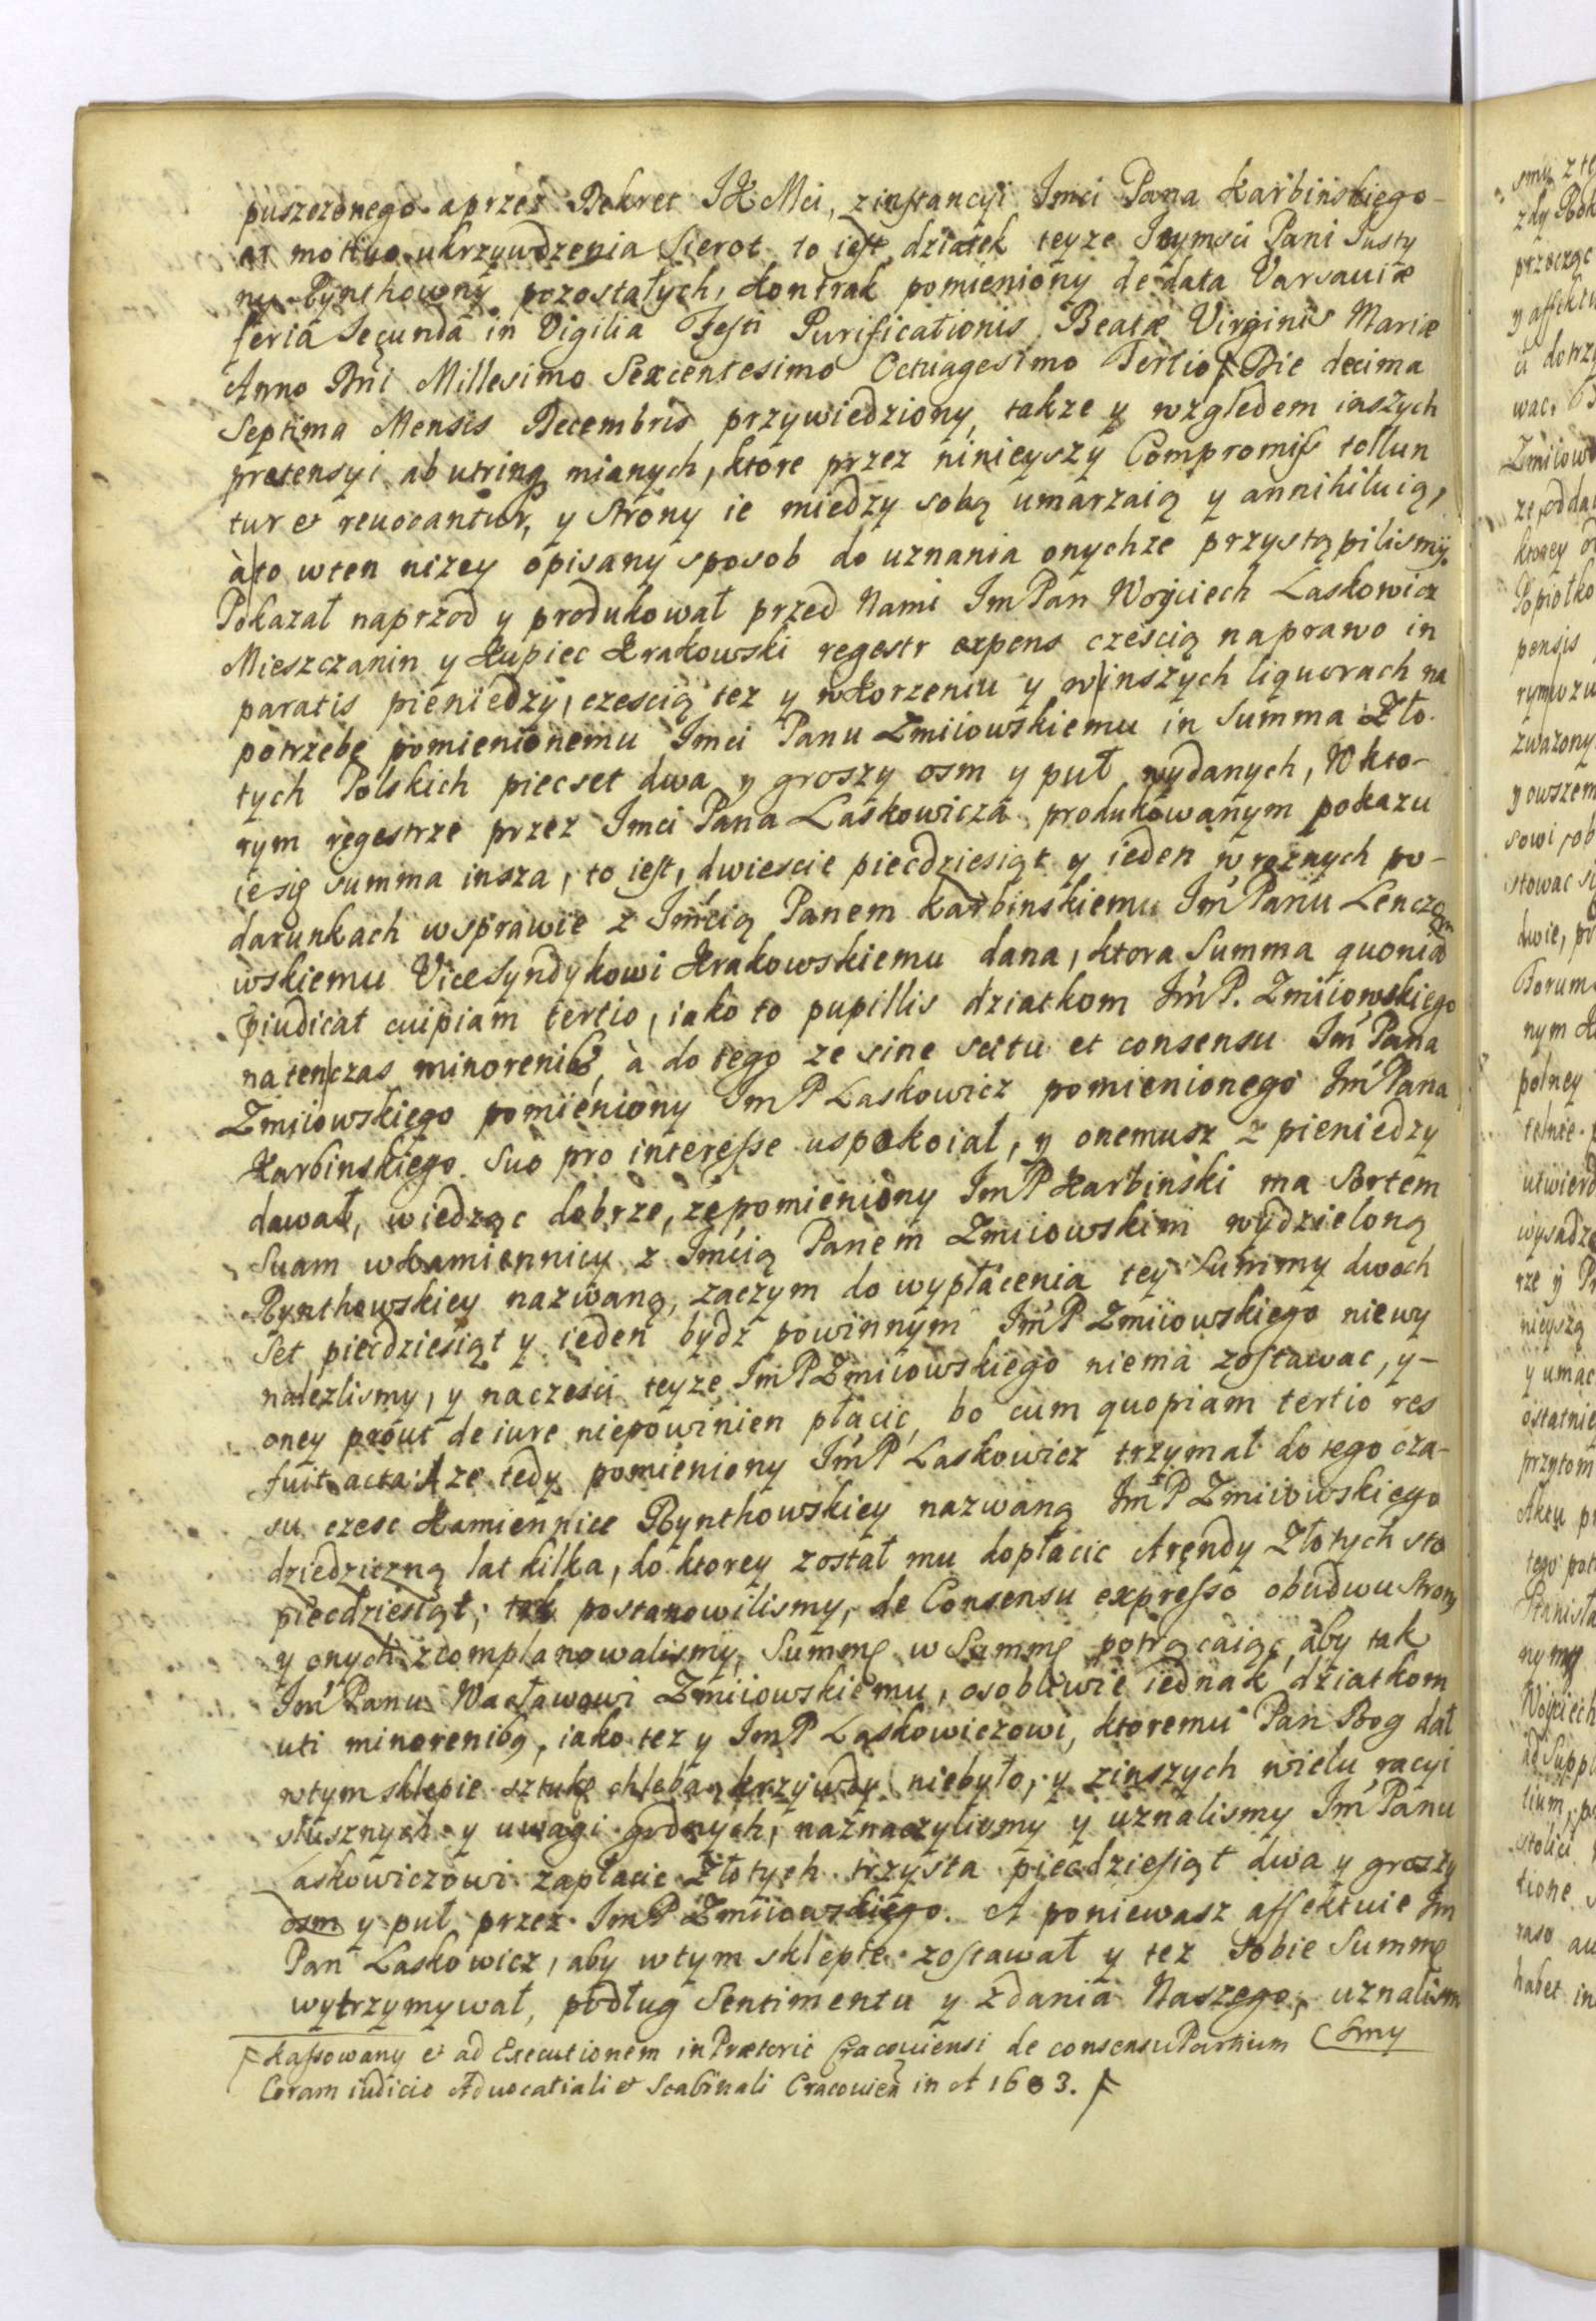 puszczonego aprzez Dekret JK Mci, zinstancyi Jmci Pana Karbinskiego-
et motivo ukrzywdzenia Sierot to iest dziatek teyze Jeymsci Pani Justy
ny Rynthowny pozostałych, kontrak pomieniony de data Varsaviæ
feriâ Secundâ in Vigilia Festi Purificationis Beatæ Virginis Mariæ
Anno Dni Millesimo Sexcentesimo Octuagesimo Tertio F Die decima
Septima Mensis Decembris przywiedziony, takze y względem inszych
pretensyi ab utrinq mianych, ktore przez ninieyszy Compromiss tollun
tur et revocantur, y Strony ie miedzy sobą umarzaią y annihiluią,
à to wten nizey opisany sposob do uznania onychze przystąpilismy.
Pokazał naprzod y produkował przed Nami Jm Pan Woyciech Laskowicz
Mieszczanin y Kupiec Krakowski regestr expens czescią naprawo in
paratis pieniedzy, czescią tez y wkorzeniu y w inszych liquorach na
potrzebe pomienionemu Jmci Panu Zmiiowskiemu in Summa Zło-
tych Polskich piecset dwa y groszy osm y puł wydanych, W kto-
rym regestrze przez Jmci Pana Laskowicza produkowanym pokazu
ie się summa insza, to iest, dwiescie piecdziesiąt y ieden w roznych po-
darunkach wsprawie z Jmscią Panem Karbinskiemu Jm Panu Lencze
wskiemu Vice Syndykowi Krakowskiemu dana, ktora Summa quoniam
piudicat cuipiam tertio, iako to pupillis dziatkom Jm P. Zmiiowskiego
natenczas minorenib, à do tego ze sine scitu et consensu Jm Pana
Zmiiowskiego pomieniony Jm P Laskowicz pomienionego Jm Pana
Karbinskiego Suo pro interesse uspokoiał, y onemusz z pieniedzy
dawał, wiedząc dobrze, ze pomieniony Jm P Karbinski ma Sortem
Suam wkamiennicy z Jmcią Panem Zmiiowskim wydzieloną
Rynthowskiey nazwaną, zaczym do wypłacenia tey Summy dwoch
Set piecdziesiąt y ieden bydz powinnym Jm P Zmiiowskiego niewy
nalezlismy, y naczesci teyze Jm P Zmiiowskiego niema zostawac, y-
oney prout de iure niepowinien płacic, bo cum quopiam tertio res
fuit acta: A ze tedy pomieniony Jm P Laskowicz trzymał do tego cza-
su czesc Kamiennice Rynthowskiey nazwaną Jm P Zmiiowskiego
dziedziczną lat kilka, do ktorey został mu dopłacic Arendy Złotych sto
piecdziesiąt; tak postanowilismy, de Consensu expresso obudwu Strony
y onych zcomplanowalismy, Summę w Summę potrącaiąc, aby tak
Jm Panu Wacławowi Zmiiowskiemu, osobliwie iednak dziatkom
uti minorenibq, iako tez y Jm P Laskowiczowi, ktoremu Pan Bog dał
wtym sklepie sztukę chleba, krzywdy niebyło, y zinszych wielu racyi
słusznych y uwagi godnych, naznaczylismy y uznalismy Jm Panu
Laskowiczowi zapłacic Złotych trzysta piecdziesiąt dwa y groszy
osm y puł, przez Jm P Zmiiowskiego. A poniewasz affektuie Jm
Pan Laskowicz, aby wtym sklepie zostawał y tez sobie Summę
wytrzymywał, podług Sentimentu y zdania Naszego, uznalism
smy
F kassowany et ad Executionem in Prætorio Cracoviensi de consensu Partium
Coram iudicio Advocatiali et Scabinali Cracovien in A 1683. F